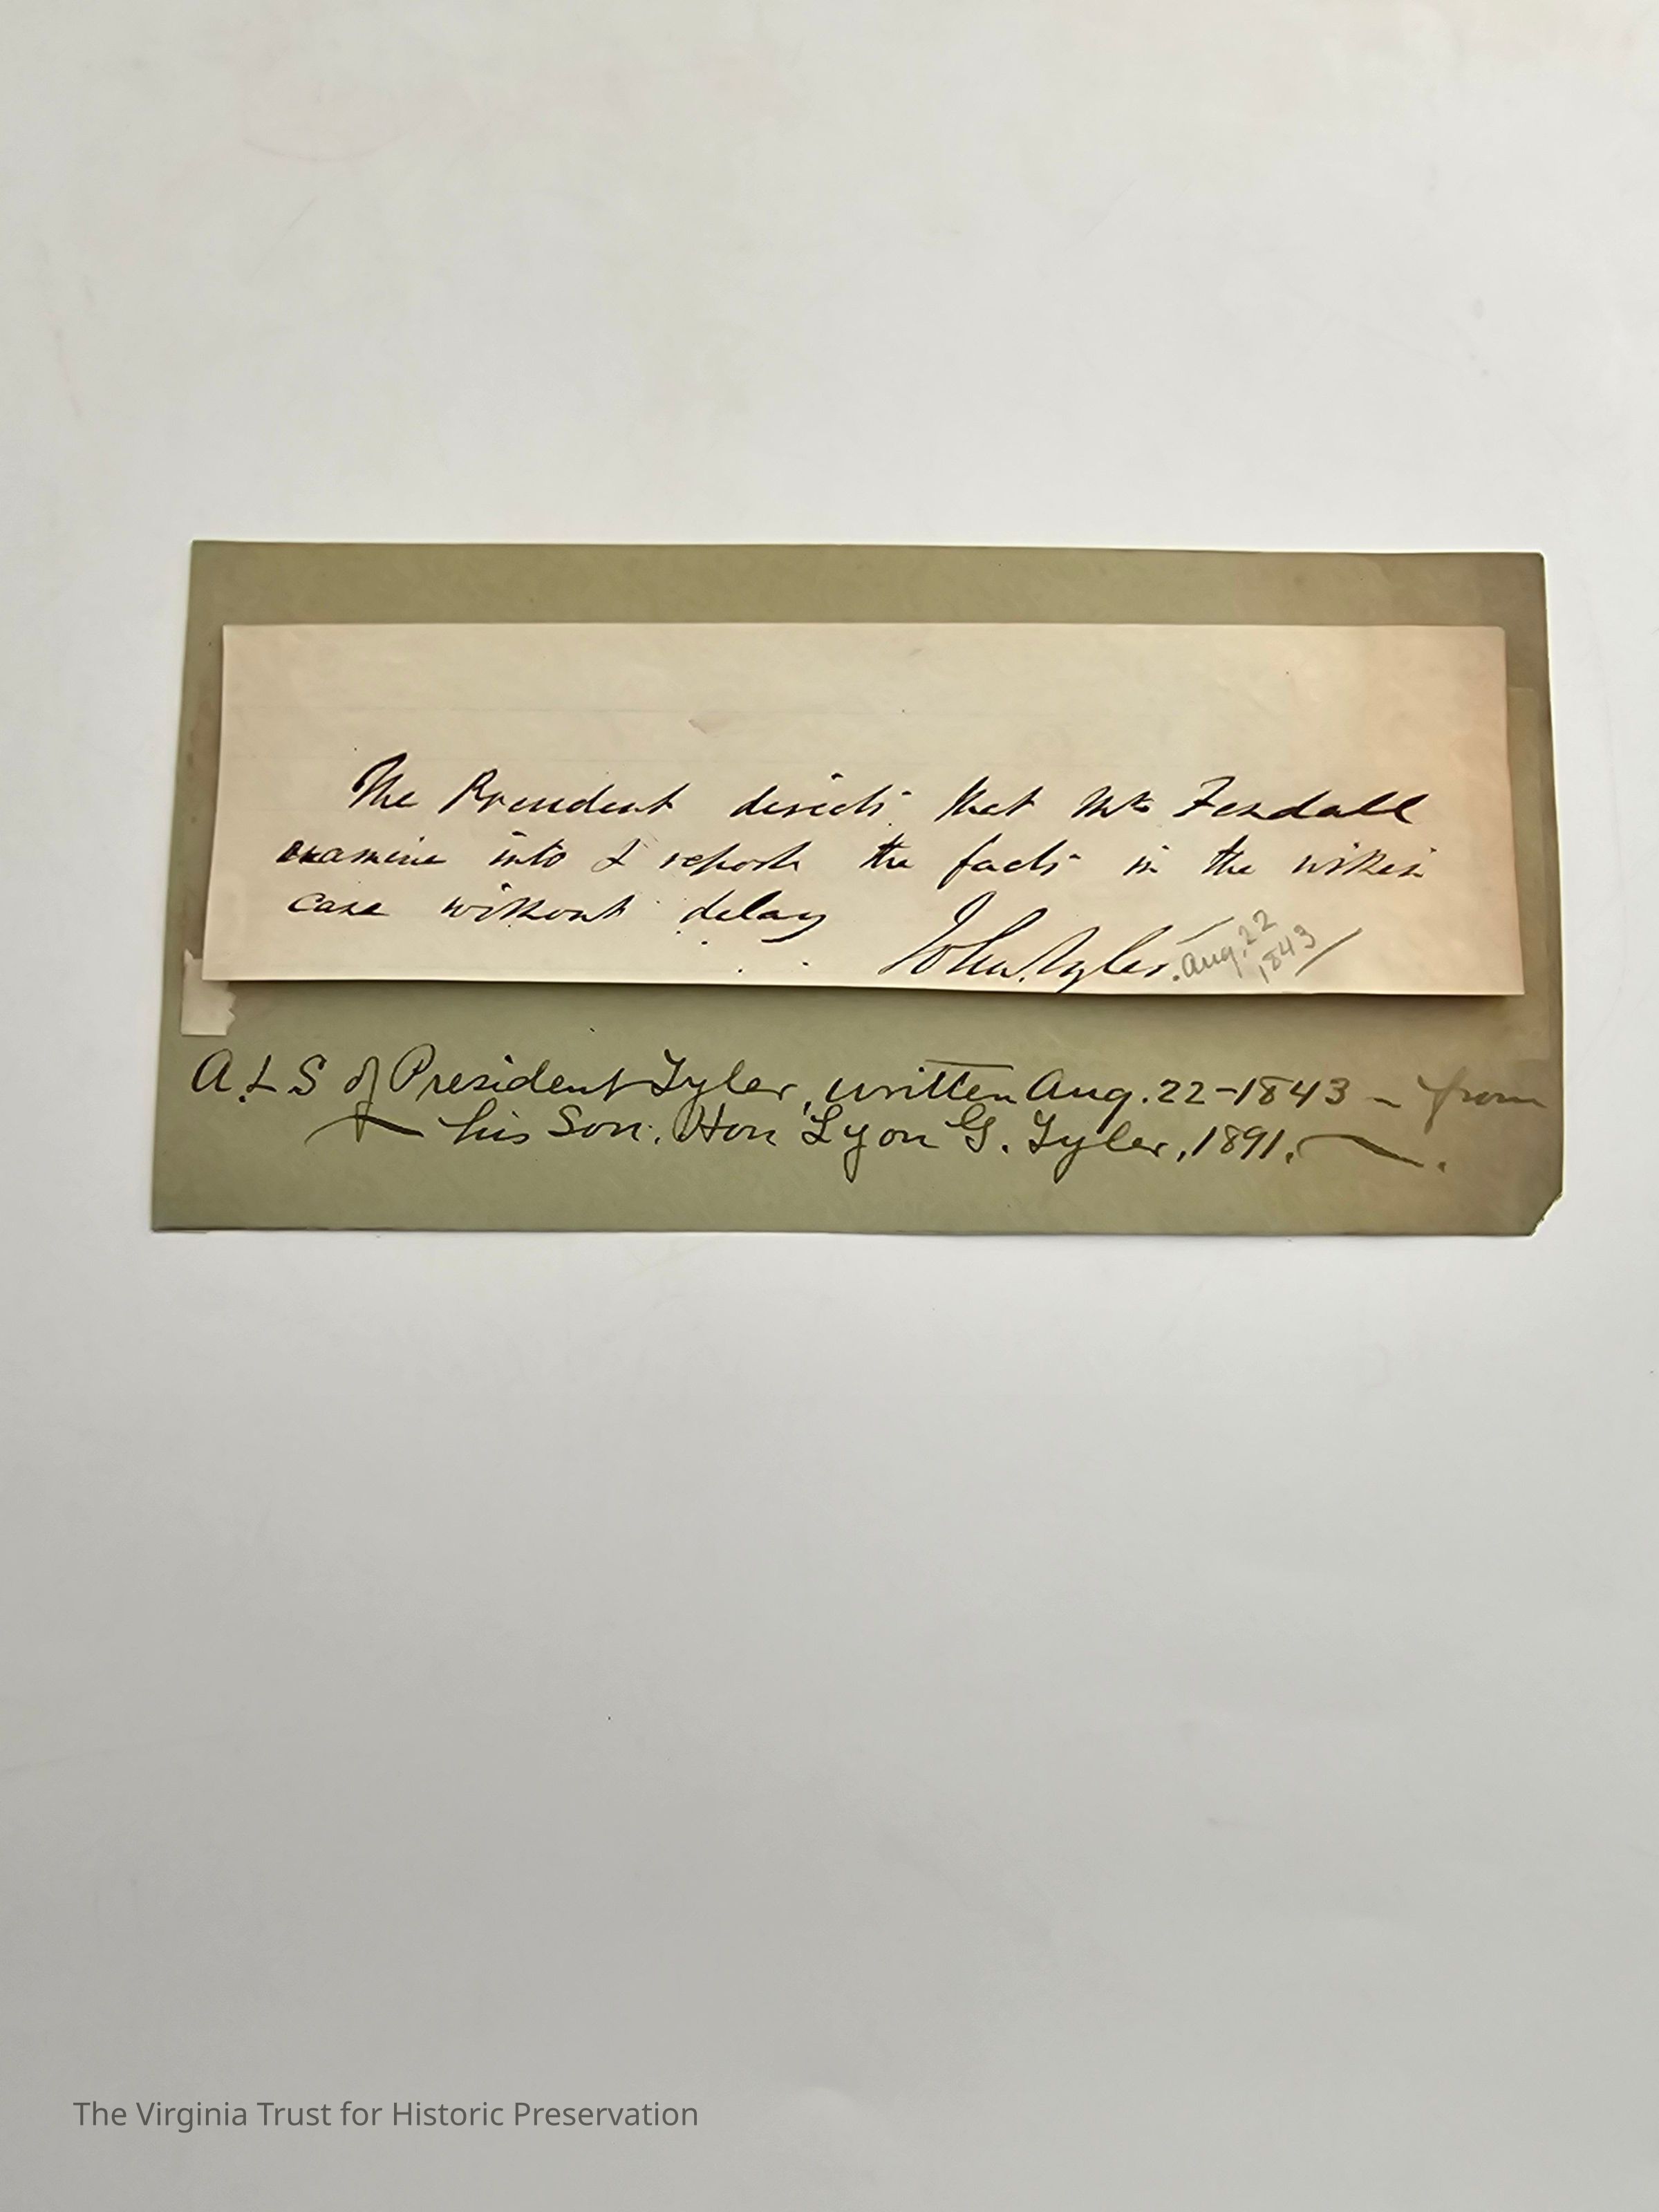 The President directs that Mr Fendall
examine into & report the facts in the within
case without delay
John Tyler.
Aug. 22
1843
A.L S of President Tyler, written Aug. 22-1843 - from
his Son. Hon Lyon G. Tyler, 1891.
The Virginia Trust for Historic Preservation